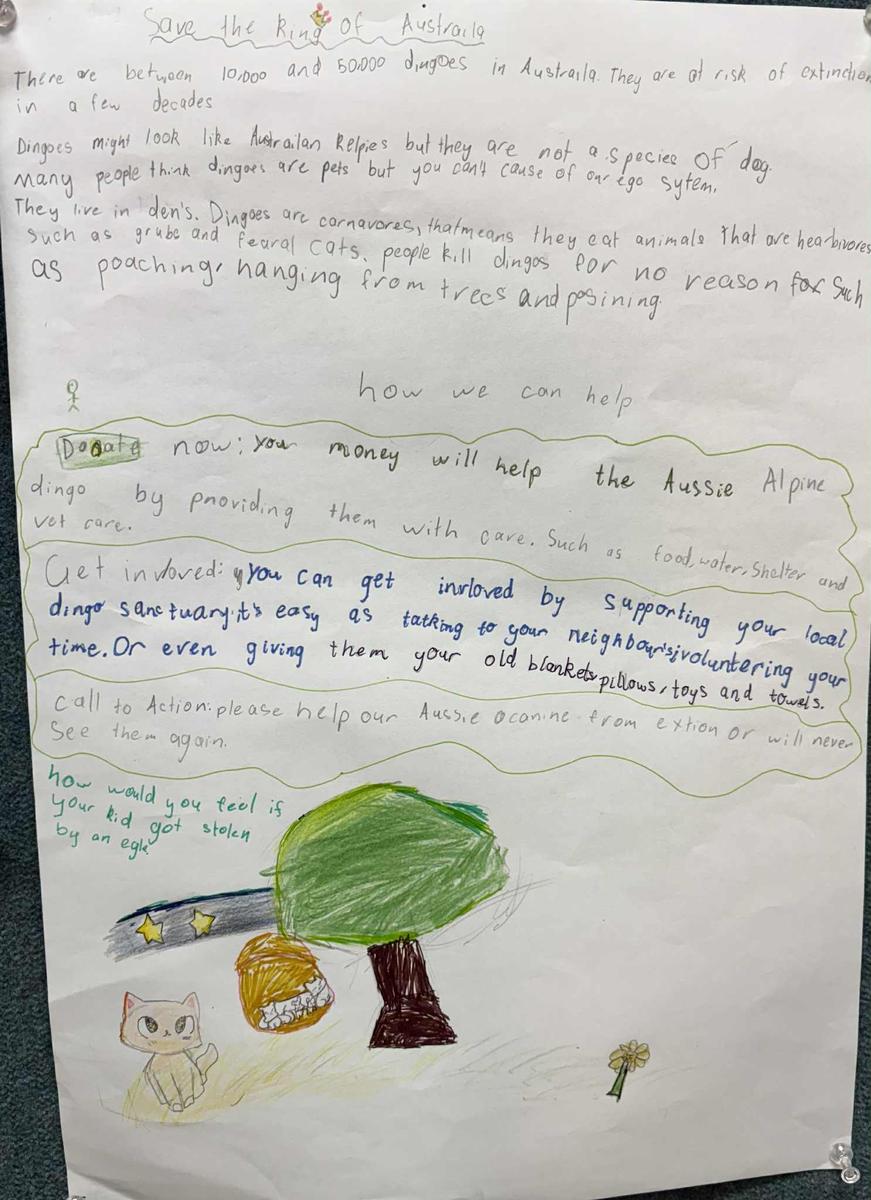 Save the king of Austraila
There are between 10,000 and 50,000 dingoes in Austraila. They are at risk of extinction
in a few decades
Dingoes might look like Austrailan Kelpies but they are not a species of dog.
Many people think dingoes are pets but you can't cause of our ego sytem.
They live in den's. Dingoes are carnavores, that means they eat animals that are hearbivores
such as grubs and fearal cats. people kill dingos for no reason for such
as poaching, hanging from trees and posining.
how we can help
Donate now: your money will help the Aussie Alpine
dingo by pnoviding them with care. Such as food, water, Shelter and
vet care.
Get invloved: you can get invloved by supporting your local
dingo sanctuary. it's easy as talking to your neighbour's, voluntering your
time. Or even giving them your old blankets pillows, toys and towels.
call to Action: please help our Aussie ocanine from extion or will never
See them again.
how would you feel if
your kid got stolen
by an egle